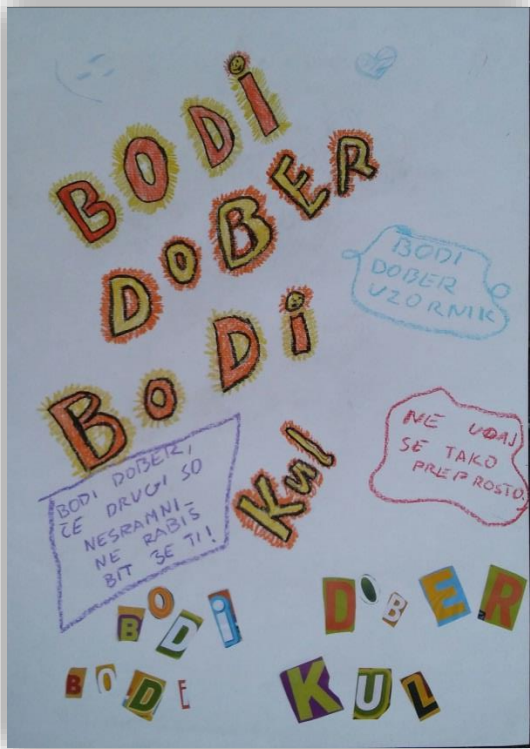 BODi
DOBER
BODi
Kul
BODI
DOBER
UZORNIK
NE UDAJ
SE TAKO
PREPROSTO.
BODI DOBER,
ČE DRUGI SO
NESRAMNI
NE RABIŠ
BIT ŠE TI!
BODI DOBER
BODE KUL